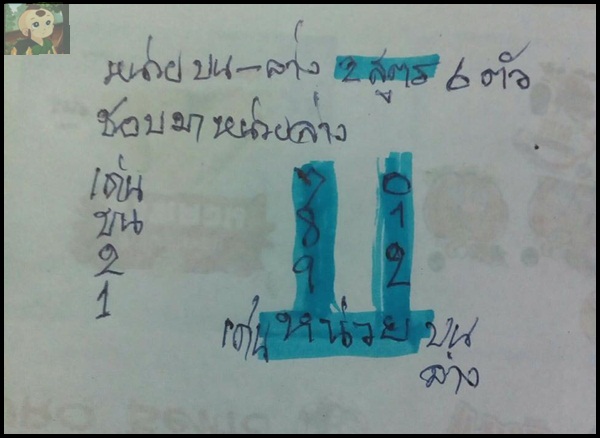 หน่วย บน-ล่าง 2 สูตร 6 ตัว
ชอบมาหน่วยล่าง
เด่น 7 0
บน 8 1
2 9 2
1
เด่น หน่วย บน
ล่าง